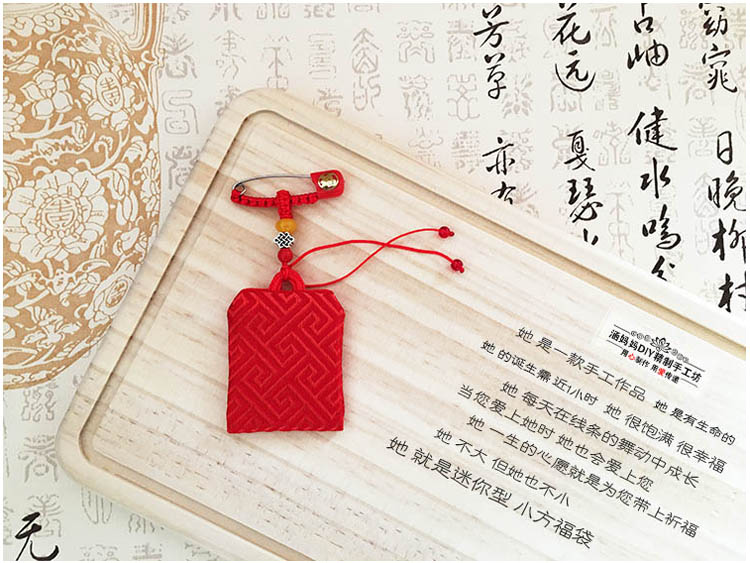 窈窕
日晚柳村
古岫
健水鸣
花远
戛瑟
芳草
亦
无
涵妈妈DIY精制手工坊
用心制作 用爱传递
她 是 一款手工作品 她 是有生命的
她 的诞生需 近1小时 她 很饱满 很幸福
她 每天在线条的舞动中成长
当您爱上她时 她也会爱上您
她 一生的心愿就是为您带上祈福
她 不大 但她也不小
她 就是迷你型 小方福袋